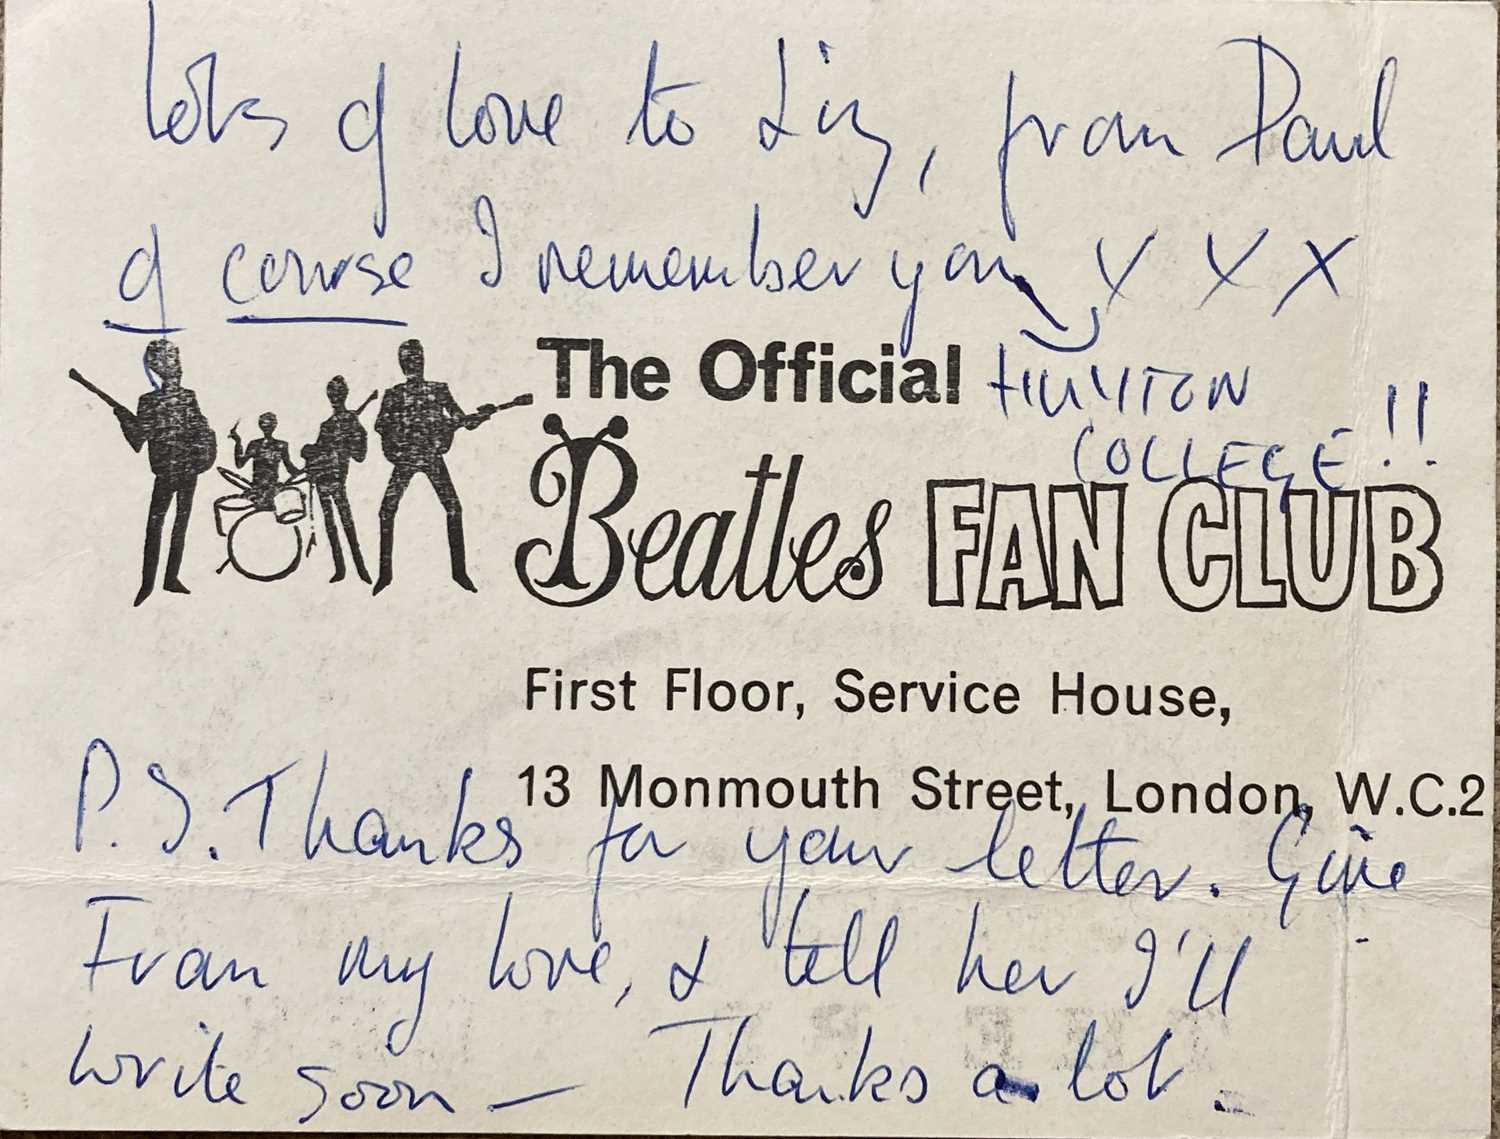 lots of love to Liz, from Paul
of course I remember you X X X
The Official
HUYTON
COLLEGE!!
Beatles FAN CLUB
First Floor, Service House,
13 Monmouth Street, London, W.C.2
P.S. Thanks for your letter. Give
Fran my love, & tell her I'll
write soon — Thanks a lot.